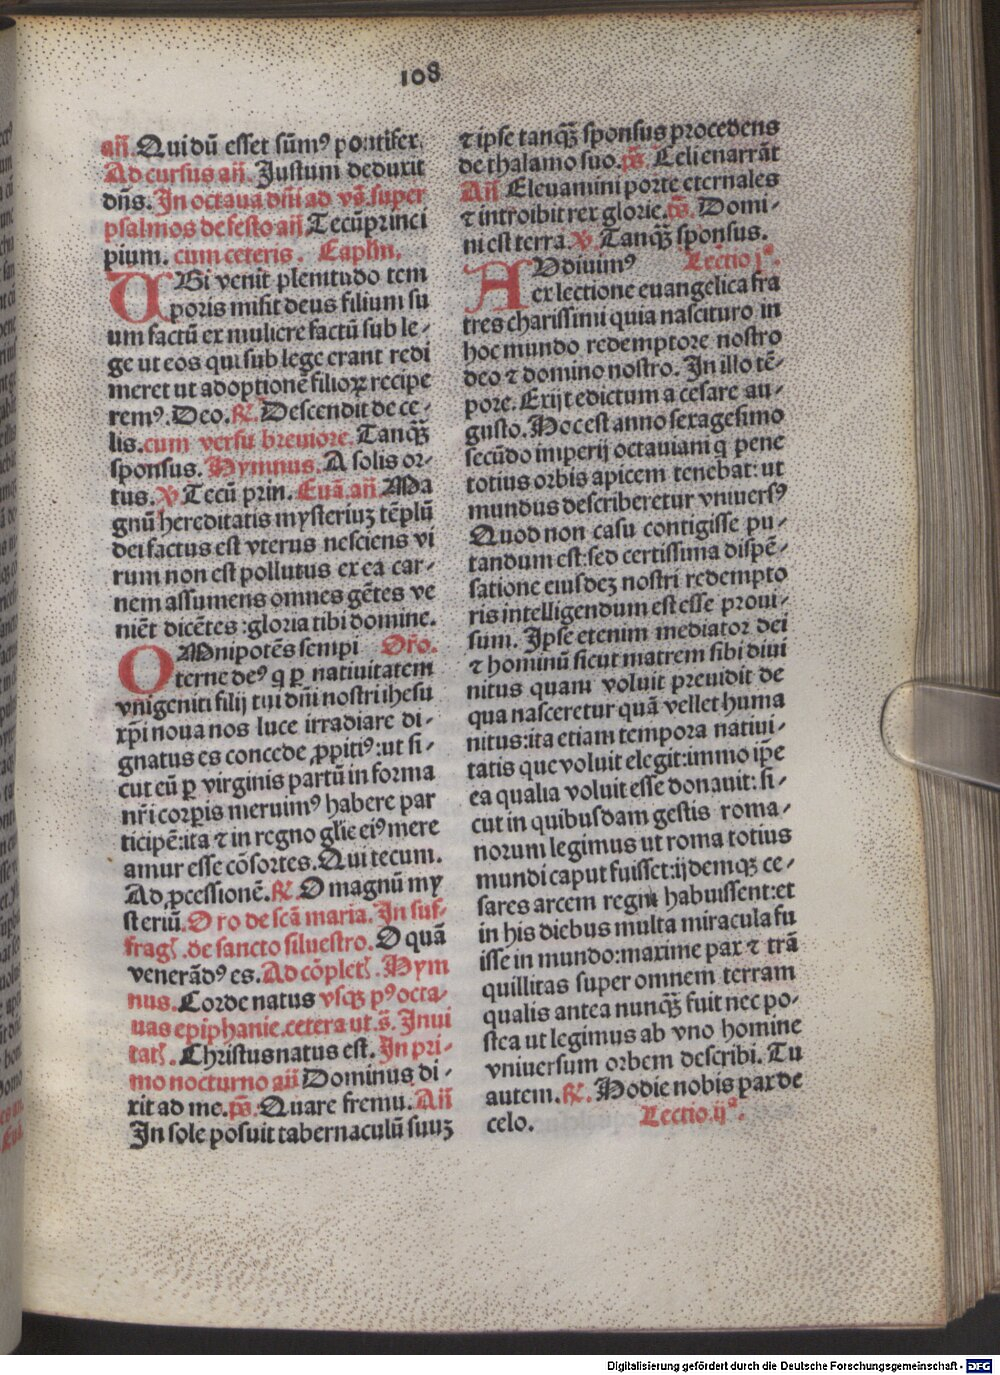 108
an̄. Qui dū esset sūmꝰ pontifex.
Ad cursus an̄. Justum deduxit
dn̄s. In octaua dn̄i ad vs̄. super
psalmos de festo an̄. Tecū princi
pium. cum ceteris. Capl'm.
UBi venit plenitudo tem
poris misit deus filium su
um factū ex muliere factū sub le-
ge ut eos qui sub lege erant redi
meret ut adoptionē filioꝝ recipe
remꝰ. Deo. ℟. Descendit de ce-
lis. cum versu breuiore. Tanqꝫ̄
sponsus. Hymnus. A solis or-
tus. ℣ Tecū prin. Euā. an̄. Ma
gnū hereditatis mysteriuꝫ tēplū
dei factus est vterus nesciens vi
rum non est pollutus ex ea car-
nem assumens omnes gētes ve
niēt dicētes: gloria tibi domine.
OMnipotēs sempi Or̄o.
terne deꝰ q ꝑ nativitatem
vnigeniti filij tui dn̄i nostri ihesu
xp̄i noua nos luce irradiare di-
gnatus es concede ꝓpitiꝰ: ut si-
cut eū ꝑ virginis partū in forma
nr̄i corꝑis meruimꝰ habere par
ticipē: ita ⁊ in regno gl'ie eiꝰ mere
amur esse cōsortes. Qui tecum.
Ad ꝓcessionē. ℟. O magnū my
steriū. Oro de scā maria. In suf-
fraḡ. de sancto siluestro. O quā
venerādꝰ es. Ad cōplet̄. Hym
nus. Corde natus vsqꝫ pꝰ octa-
uas epiphanie. cetera ut. s̄. Inui
tat̄. Christus natus est. In pri-
mo nocturno an̄ Dominus di-
xit ad me. ps̄. Quare fremu. An̄
In sole posuit tabernaculū suuꝫ
⁊ ipse tanqꝫ̄ sponsus procedens
de thalamo suo. ps̄ Celi enarrāt
An̄ Eleuamini porte eternales
⁊ introibit rex glorie. ps̄. Domi-
ni est terra. ℣. Tanqꝫ̄ sponsus.
AUdiuimꝰ Lectio jᵃ.
ex lectione euangelica fra
tres charissimi quia nascituro in
hoc mundo redemptore nostro
deo ⁊ domino nostro. In illo tē-
pore. Exijt edictum a cesare au-
gusto. Hoc est anno sexagesimo
secūdo imperij octauiani q pene
totius orbis apicem tenebat: ut
mundus describeretur vniuersꝰ
Quod non casu contigisse pu-
tandum est: sed certissima dispē-
satione eiusdeꝫ nostri redempto
ris intelligendum est esse proui-
sum. Ipse etenim mediator dei
⁊ hominū sicut matrem sibi diui
nitus quam voluit preuidit de
qua nasceretur quā vellet huma
nitus: ita etiam tempora natiui-
tatis que voluit elegit: immo ip̄e
ea qualia voluit esse donauit: si-
cut in quibusdam gestis roma-
norum legimus ut roma totius
mundi caput fuisset: ijdemqꝫ ce-
sares arcem regni habuissent: et
in his diebus multa miracula fu
isse in mundo: maxime pax ⁊ trā
quillitas super omnem terram
qualis antea nunqꝫ̄ fuit nec po-
stea ut legimus ab vno homine
vniuersum orbem describi. Tu
autem. ℟. Hodie nobis pax de
celo. Lectio. ijᵃ.
Digitalisierung gefördert durch die Deutsche Forschungsgemeinschaft - DFG